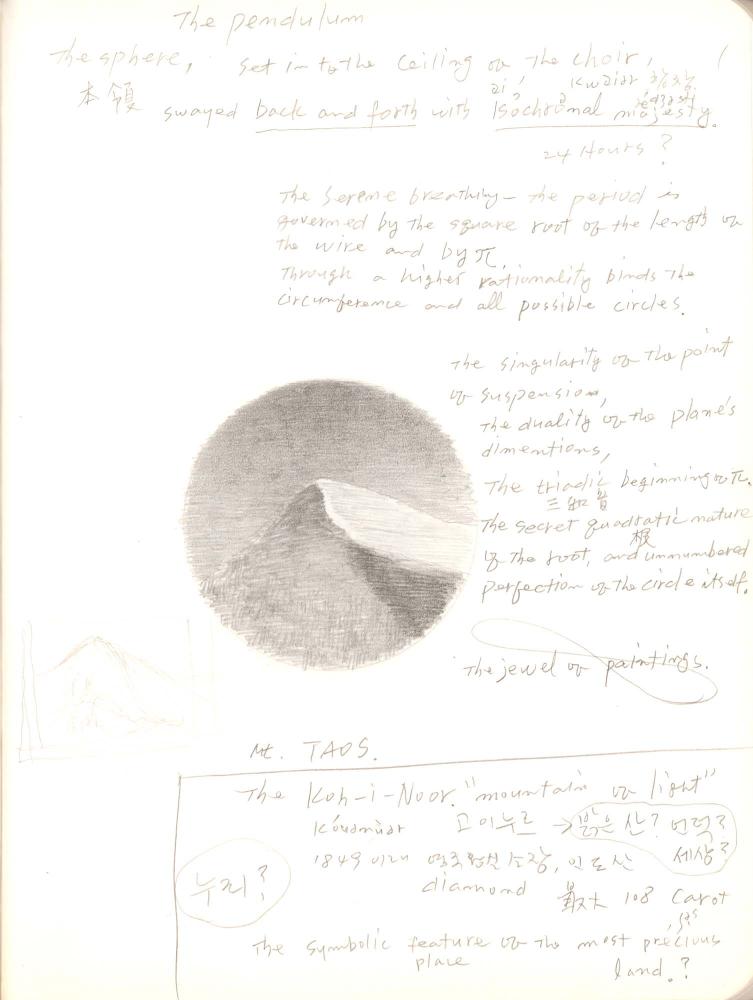 The pendulum
The sphere, set into the ceiling of the choir,
本領
ai kwaiər 합창
swayed back and forth with isochronal majesty.
24 Hours?
The serene breathing - the period is
governed by the square root of the length of
the wire and by π.
Through a higher rationality binds the
circumference and all possible circles.
The singularity of the point
of suspension,
The duality of the plane's
dimentions,
The triadic beginning of π.
The secret quadratic nature
根
of the root, and unnumbered
perfection of the circle itself.
The jewel of paintings.
Mt. TAOS.
The Koh-i-Noor. "mountain of light"
고이누르 → 밝은 산? 언덕?
세상?
누리?
1849 이래 영국왕실 소장, 인도산
diamond 最大 108 Carot
The symbolic feature of the most precious
place land.?